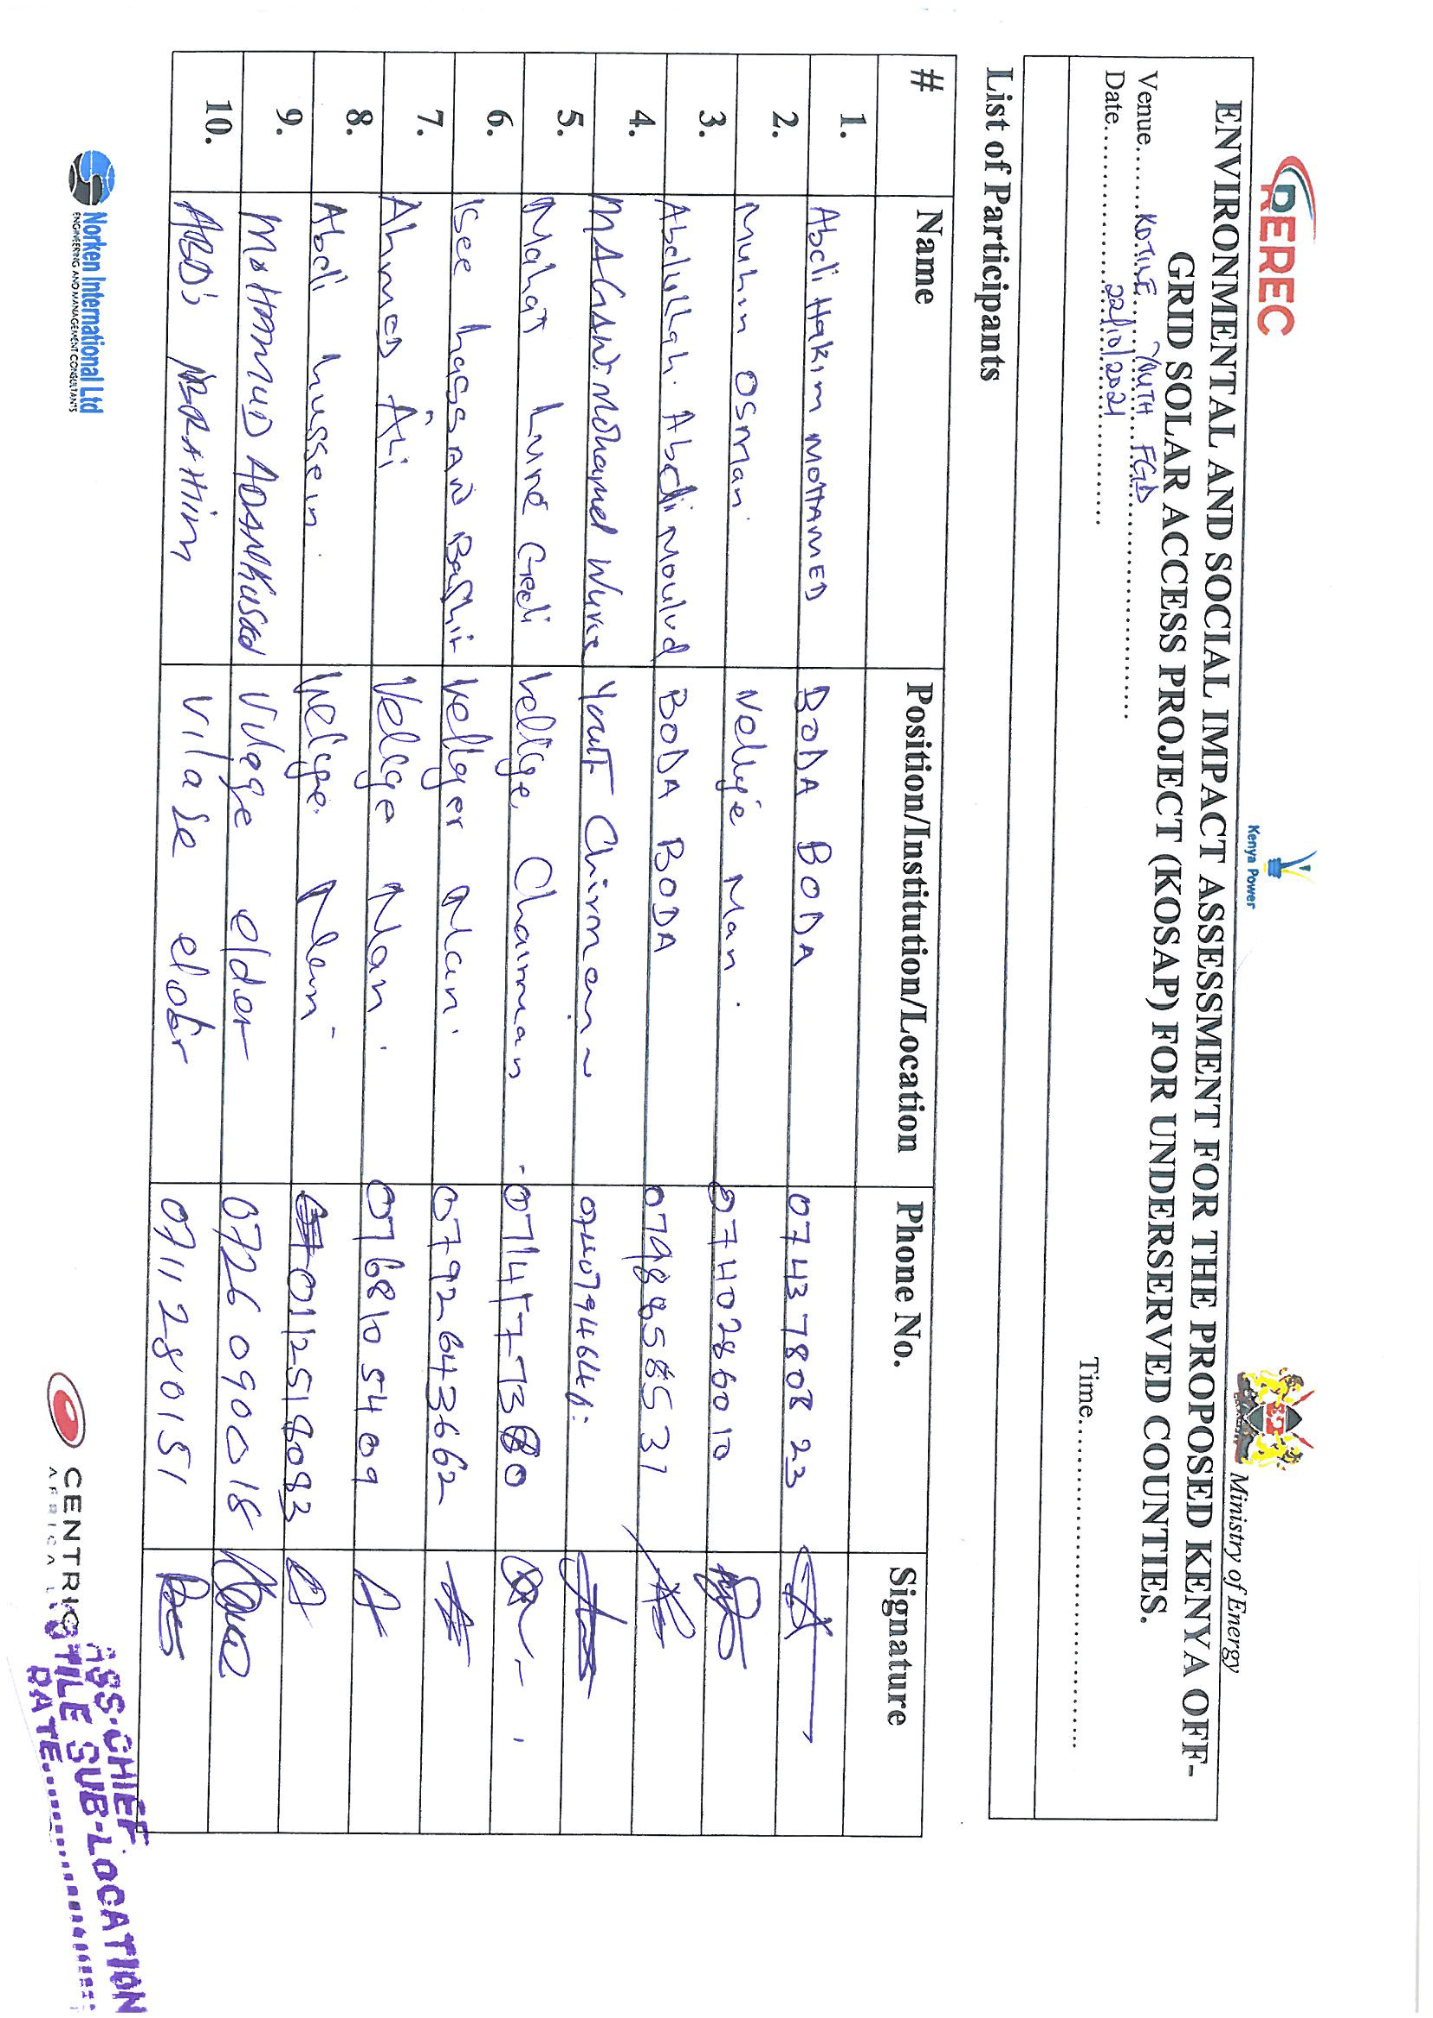 REREC
Kenya Power
Ministry of Energy
ENVIRONMENTAL AND SOCIAL IMPACT ASSESSMENT FOR THE PROPOSED KENYA OFF-
GRID SOLAR ACCESS PROJECT (KOSAP) FOR UNDERSERVED COUNTIES.
Venue......KOTILE...YOUTH FGD......
Date......22/10/2021...... Time......
List of Participants
# Name Position/Institution/Location Phone No. Signature
1. Abdi Hakim MOHAMED BODA BODA 0743780823
2. Muhun Osman Vellije Man. 0740286010
3. Abdullahi Abdi Moulud BODA BODA 0798858531
4. MAGAN Mohamed Youth Chirman
5. Mahat Gedi Vellige Chairman
6. Isee hassan Bashir Vellger Man 0792643662
7. Ahmed Ali Vellge Man. 0768105409
8. Abdi hussein. Man
9. MAHAMUD Village elder 0726090018
10. ABDi IBRAHIM Vilage 0711280151
Norken International Ltd
ENGINEERING AND MANAGEMENT CONSULTANTS
CENTRIC
AFRICA
ASS.CHIEF
SUB-LOCATION
DATE..............